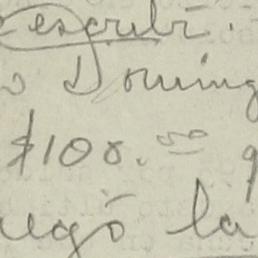 escribí.
o Doming
$100.00 q
egó la